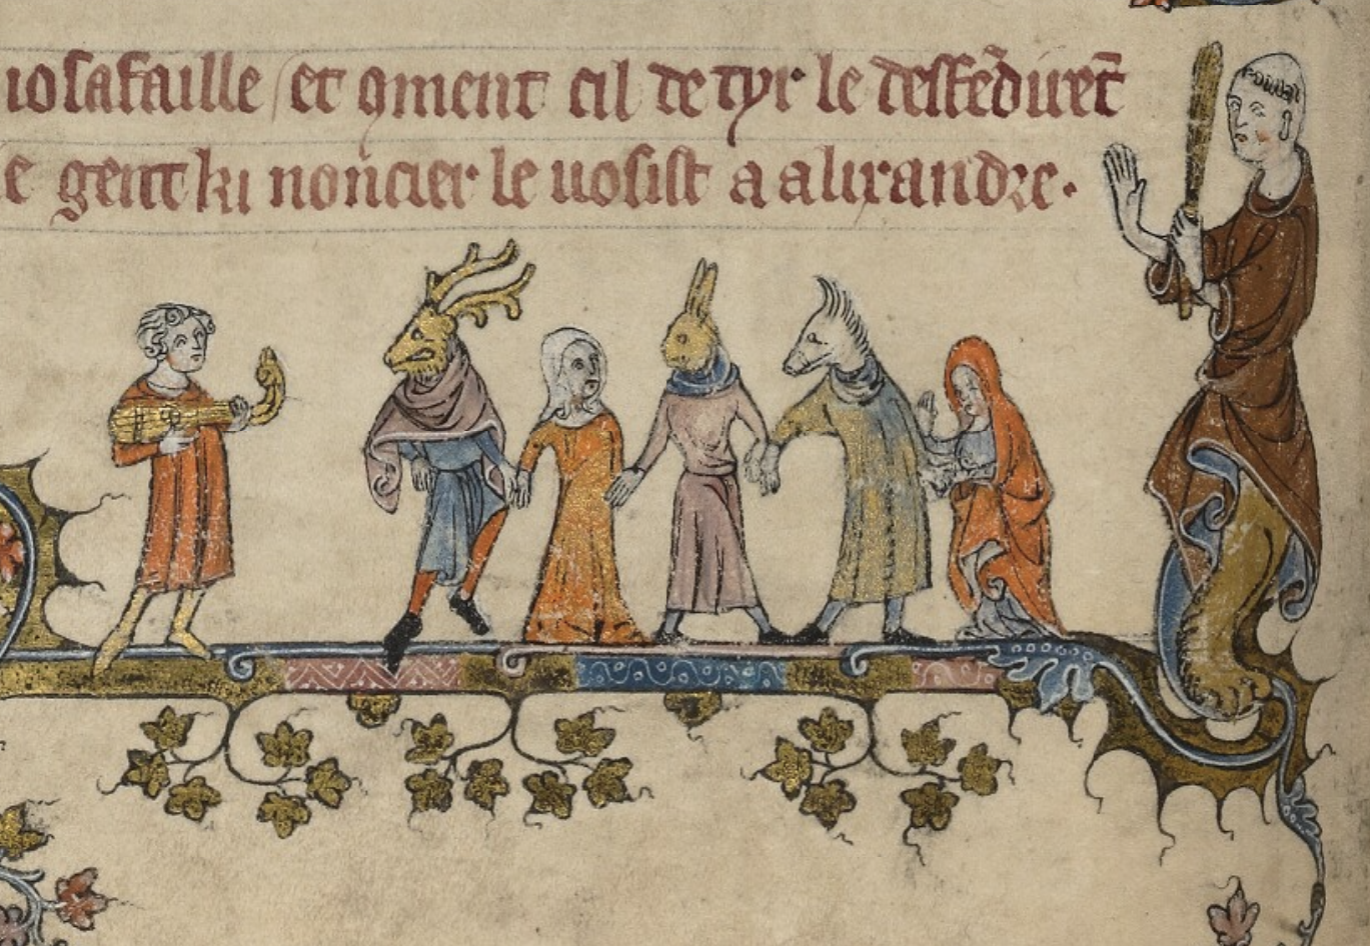 iosafaille et ꝯment cil de tyr le deffẽdirẽt
e gent ki noncier le uosist a alixandre.